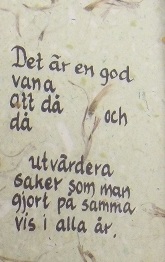 Det är en god
vana
att då och
då
utvärdera
saker som man
gjort på samma
vis i alla år.